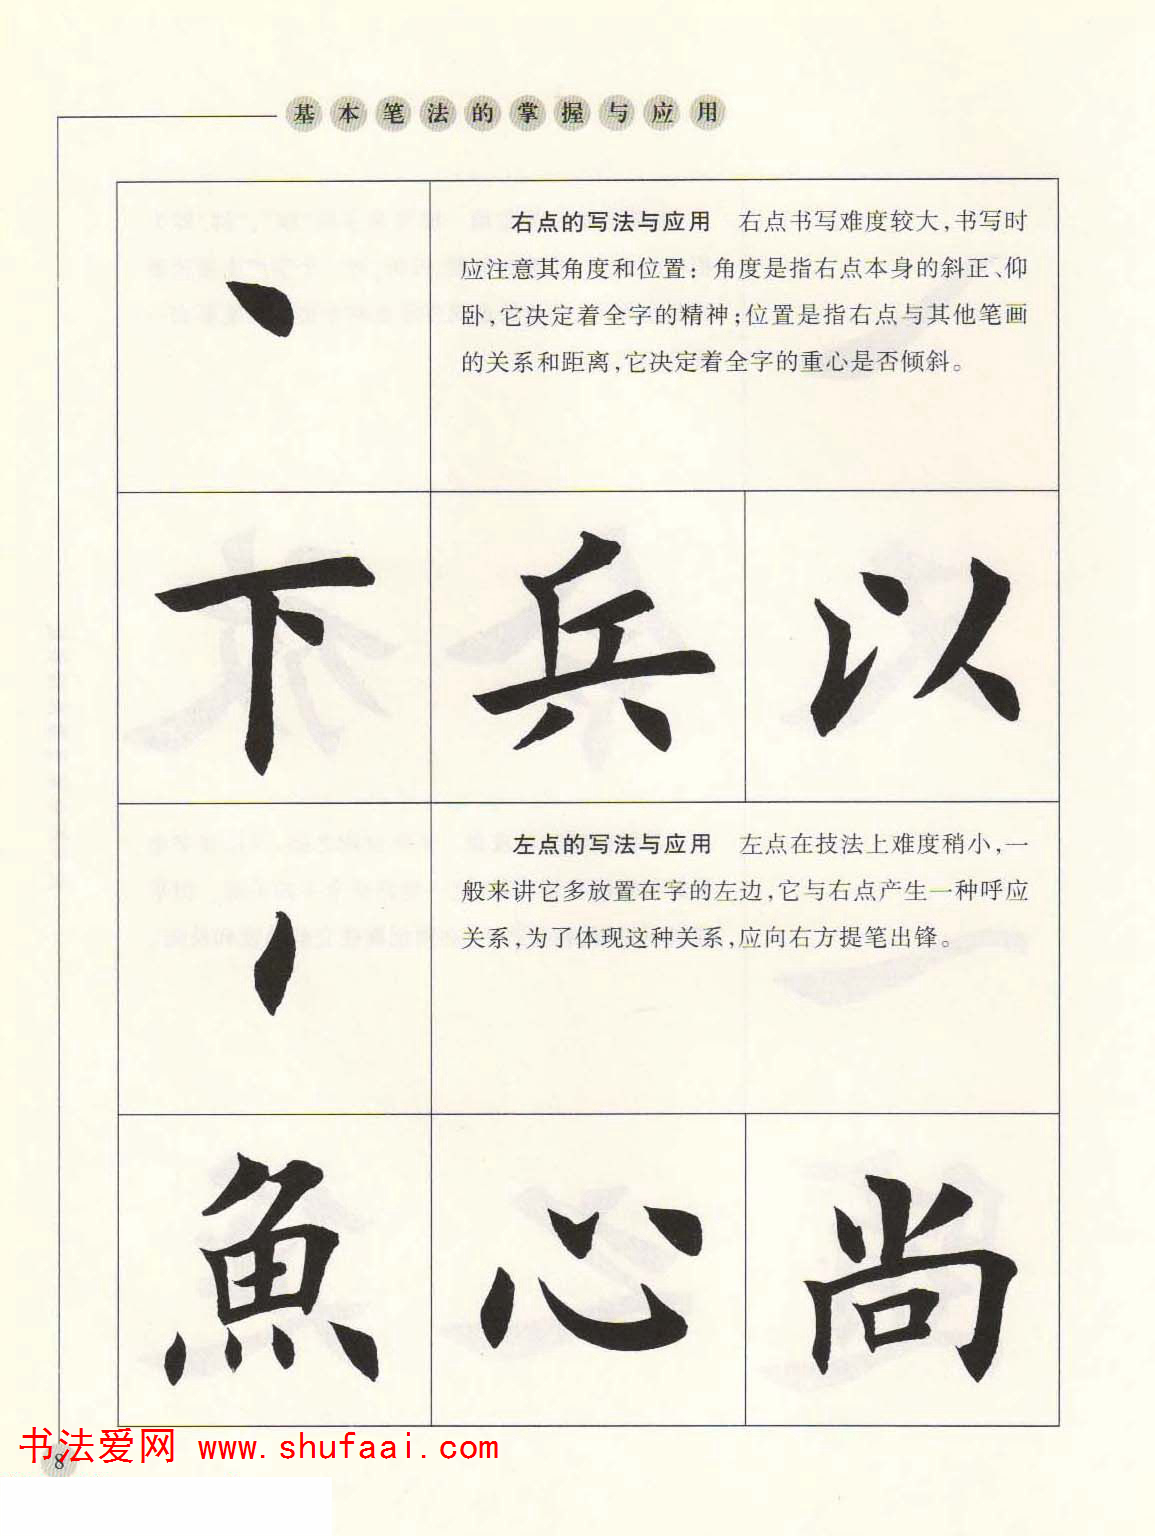 基本笔法的掌握与应用
右点的写法与应用　右点书写难度较大，书写时
应注意其角度和位置：角度是指右点本身的斜正、仰
卧，它决定着全字的精神；位置是指右点与其他笔画
的关系和距离，它决定着全字的重心是否倾斜。
下 兵 以
左点的写法与应用　左点在技法上难度稍小，一
般来讲它多放置在字的左边，它与右点产生一种呼应
关系，为了体现这种关系，应向右方提笔出锋。
魚 心 尚
书法爱网 www.shufaai.com
8